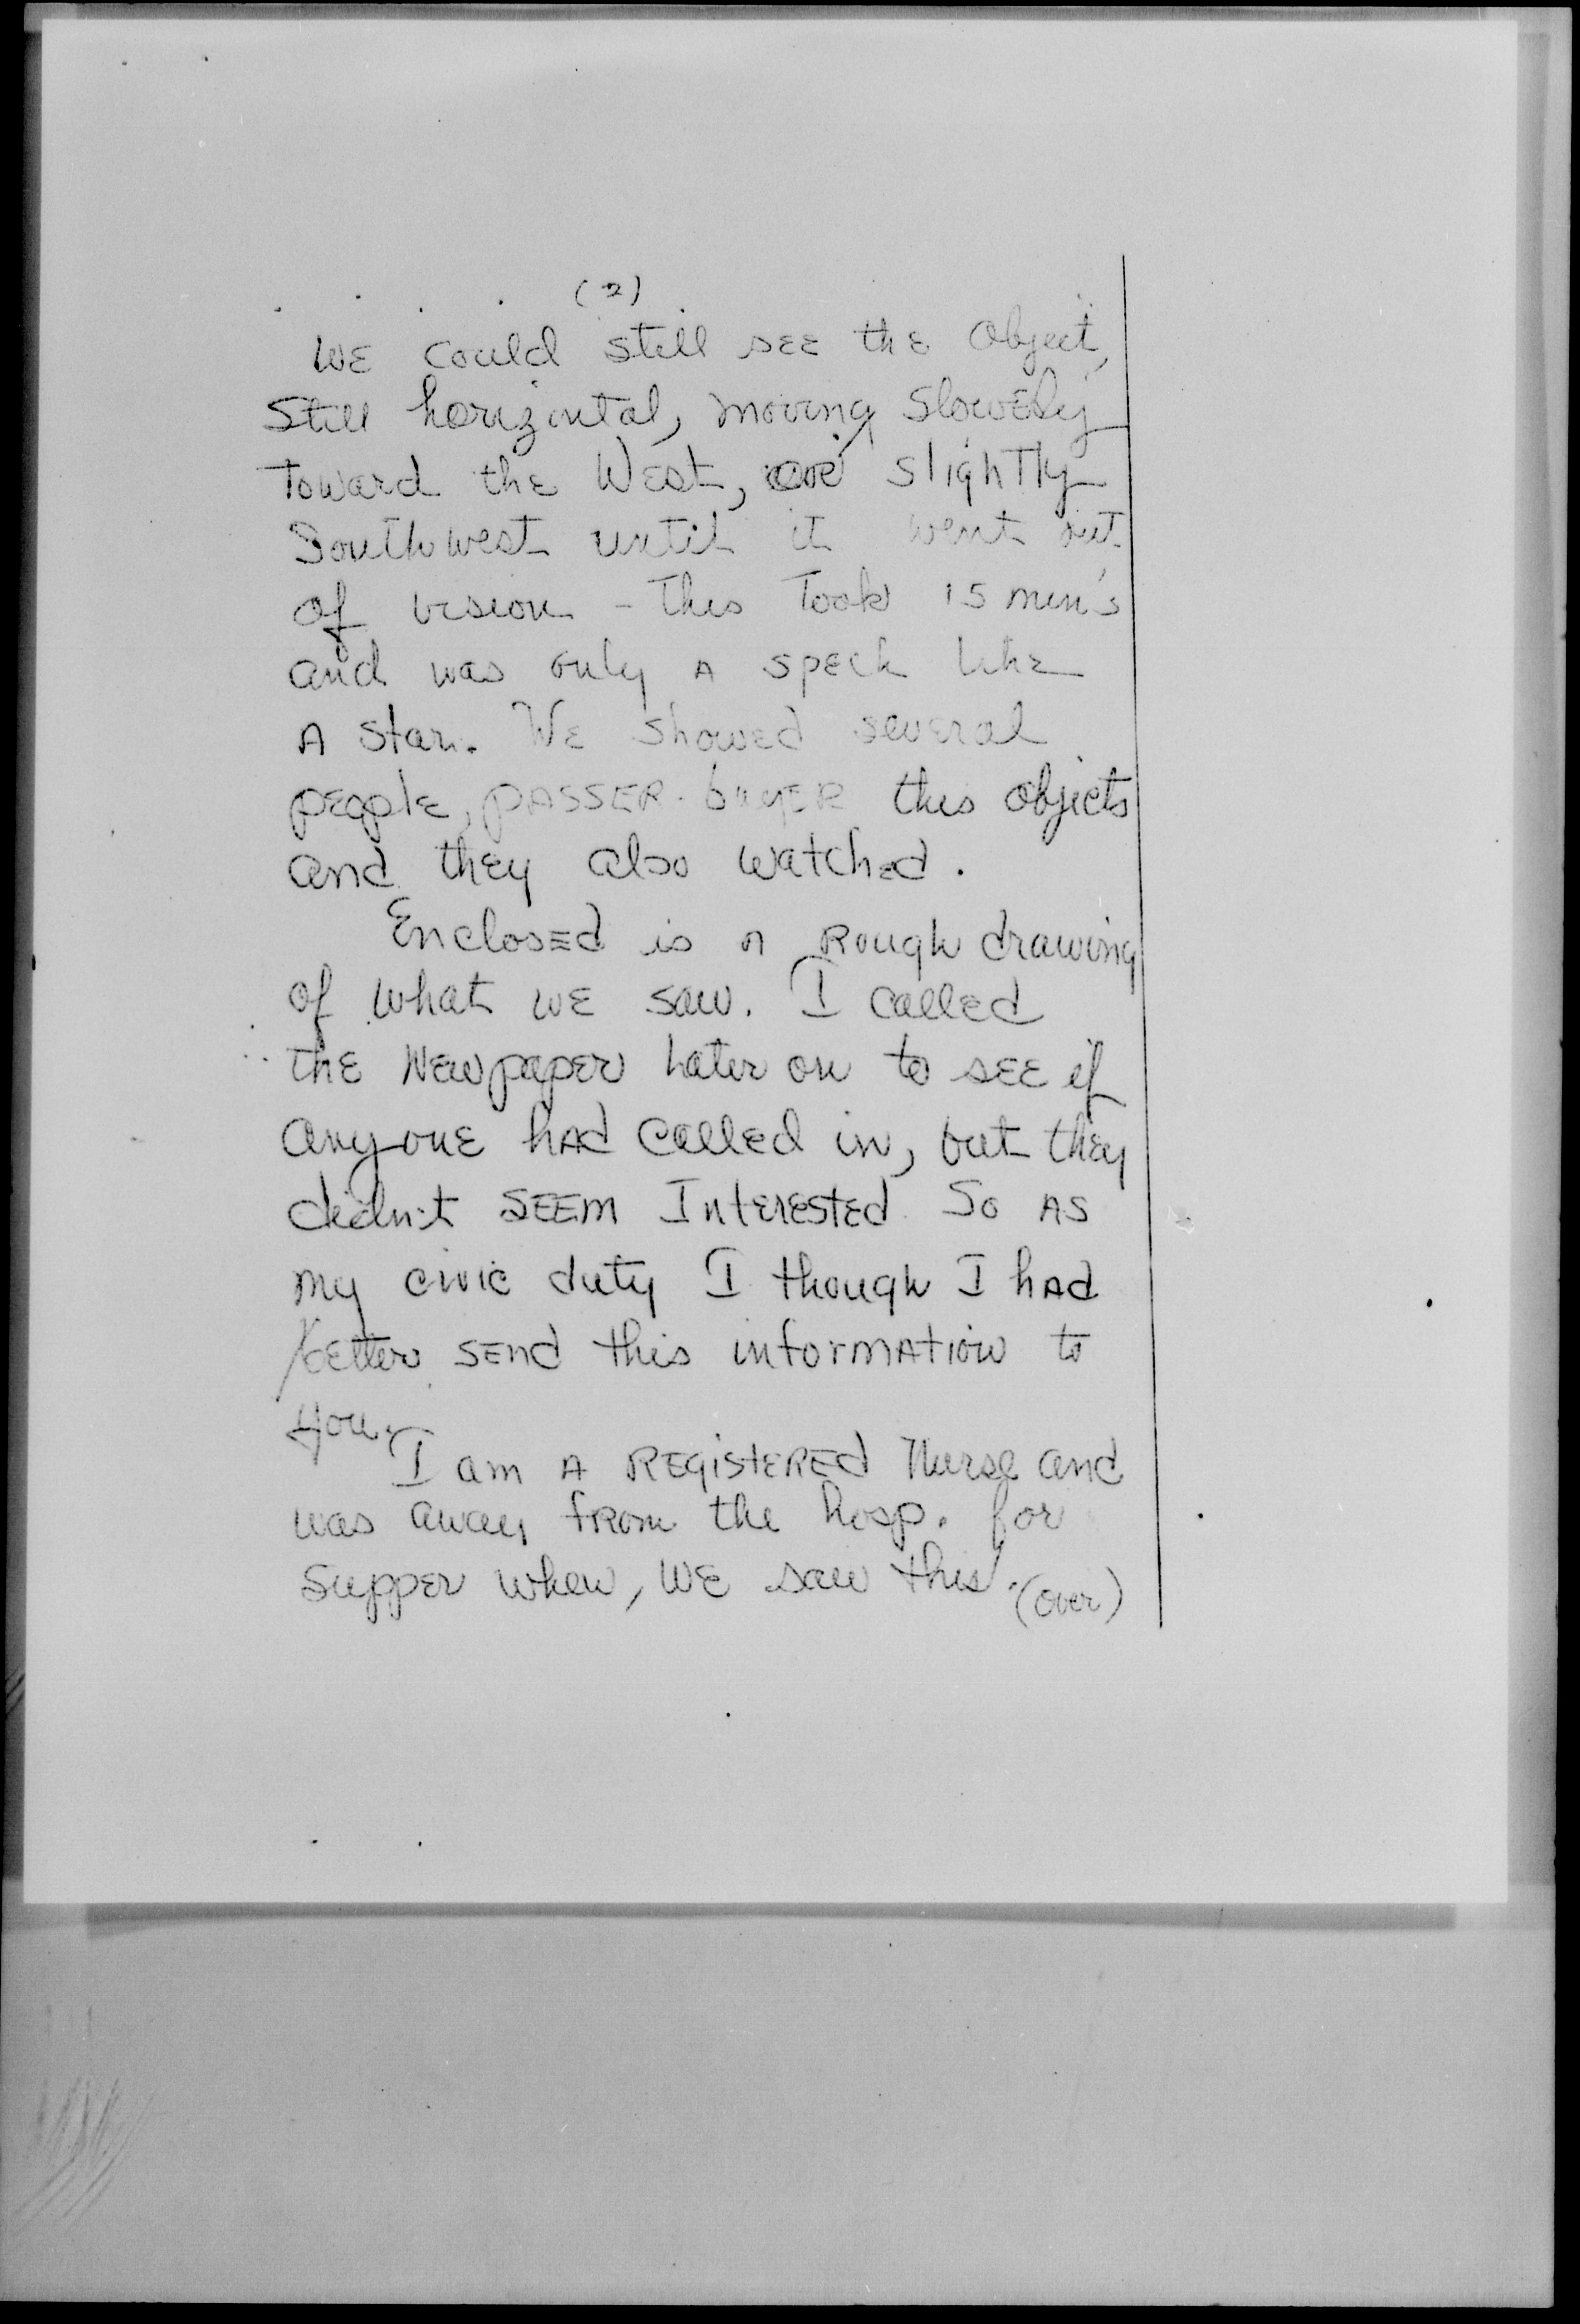 (2)
WE could still see the object,
Still horizontal, moving Slowely
Toward the West, or slightly
Southwest until it went out
of vision - This Took 15 min's
and was only A speck like
A star. WE showed several
people, PASSER-buyER this objects
and they also watched.
Enclosed is A Rough drawing
of what WE saw. I called
the Newpaper later on to SEE if
anyone had called in, but they
didn't SEEM Interested So AS
my civic duty I though I had
better send this information to
you.
I am A REGISTERED Nurse and
was away from the hosp. for
Supper when, WE saw this.
(over)